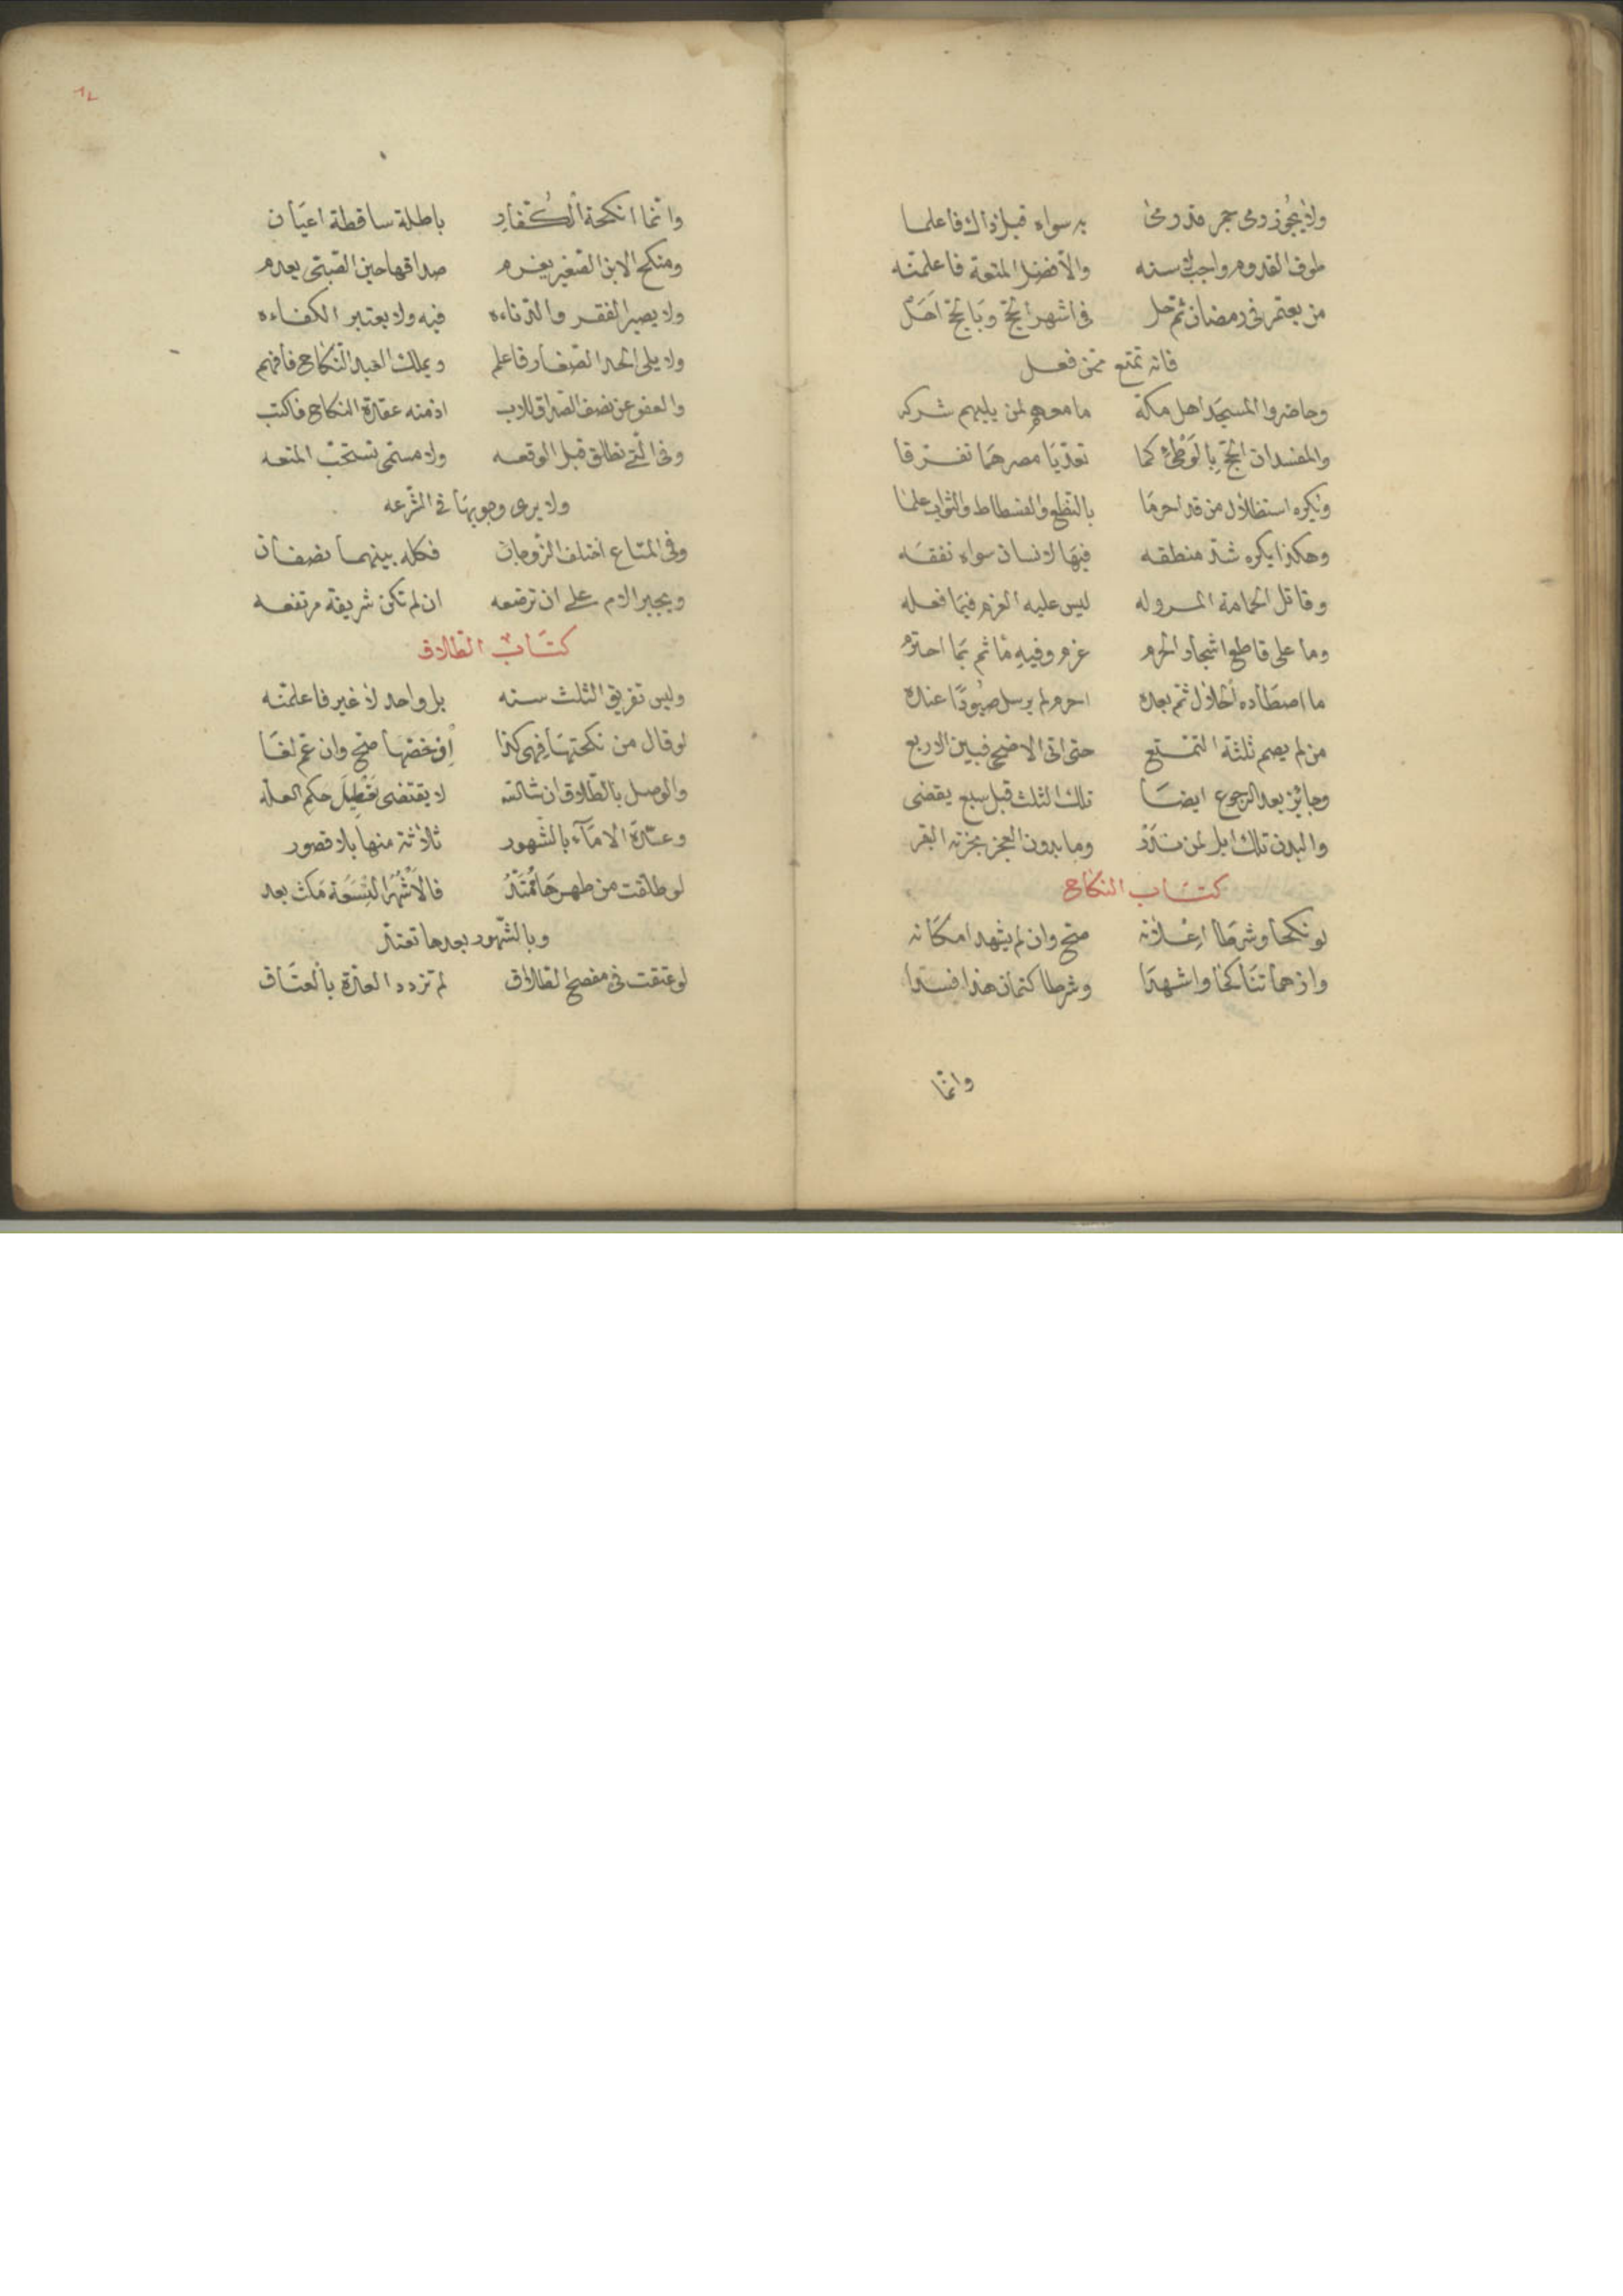 ولا يجوز رمى حجر قد رمى به سواه قبل ذاك فاعلما
طوف القدوم واجب لا سنه والأفضل المتعة فاعلمنه
من يعتمر فى رمضان ثم حل فى اشهر الحج وبالحج اهل
فانه تمتع ممن فعل
وحاضروا المسجد اهل مكة ما معهم لمن يليهم شركه
والمفسدان الحج بالوطئ كما تعديا مصرهما تفرقا
ويكره استظلال من قد احرما بالنطع والفسطاط والثوب علما
وهكذا يكره شد منطقه فيها لانسان سواه نفقه
وقاتل الحمامة المسروله ليس عليه الغرم فيما فعله
وما على قاطع اشجار الحرم غرم وفيه مأثم بما احترم
ما اصطاده الحلال ثم بعده احرم لم يرسل صيودا عنده
من لم يصم ثلثة التمتع حتى اتى الاضحى فبين الاربع
وجائز بعد الرجوع ايضا تلك الثلث قبل سبع يقضى
والبدن تلك ابل لمن نذر وما بدون العجز يجزئه البقر
كتاب النكاح
لو نكحا وشرطا اعلانه صح وان لم يشهدا مكانه
واذ هما تناكحا واشهدا وشرطا كتمان هذا فسدا
وانما
وانما انكحة الكفار باطلة ساقطة اعيان
ومنكح الابن الصغير يغرم صداقها حين الصبى يعدم
ولا يصير الفقر والدناءه فيه ولا يعتبر الكفاءه
ولا يلى الجد الصغار فاعلم ويملك العبد النكاح فافهم
والعفو عن نصف الصداق للاب اذ منه عقدة النكاح فاكتب
وفى التى تطلق قبل الوقعه ولا مسمى تستحب المتعه
ولا يرى وجوبها فى الشرعه
وفى المتاع اختلف الزوجان فكله بينهما نصفان
ويجبر الام على ان ترضعه ان لم تكن شريفة مرتفعه
كتاب الطلاق
وليس تفريق الثلث سنه بل واحد لا غير فاعلمنه
لو قال من نكحتها فهى كذا إن خصها صح وان عم لغا
والوصل بالطلاق ان شاالله لا يقتضى تعطيل حكم العله
وعدة الامآء بالشهور ثلاثة منها بلا قصور
لو طلقت من طهرها ممتد فالاشهر التسعة مكث بعد
وبالشهور بعدها تعتد
لو عتقت فى مفصح الطلاق لم تزدد العدة بالعتاق